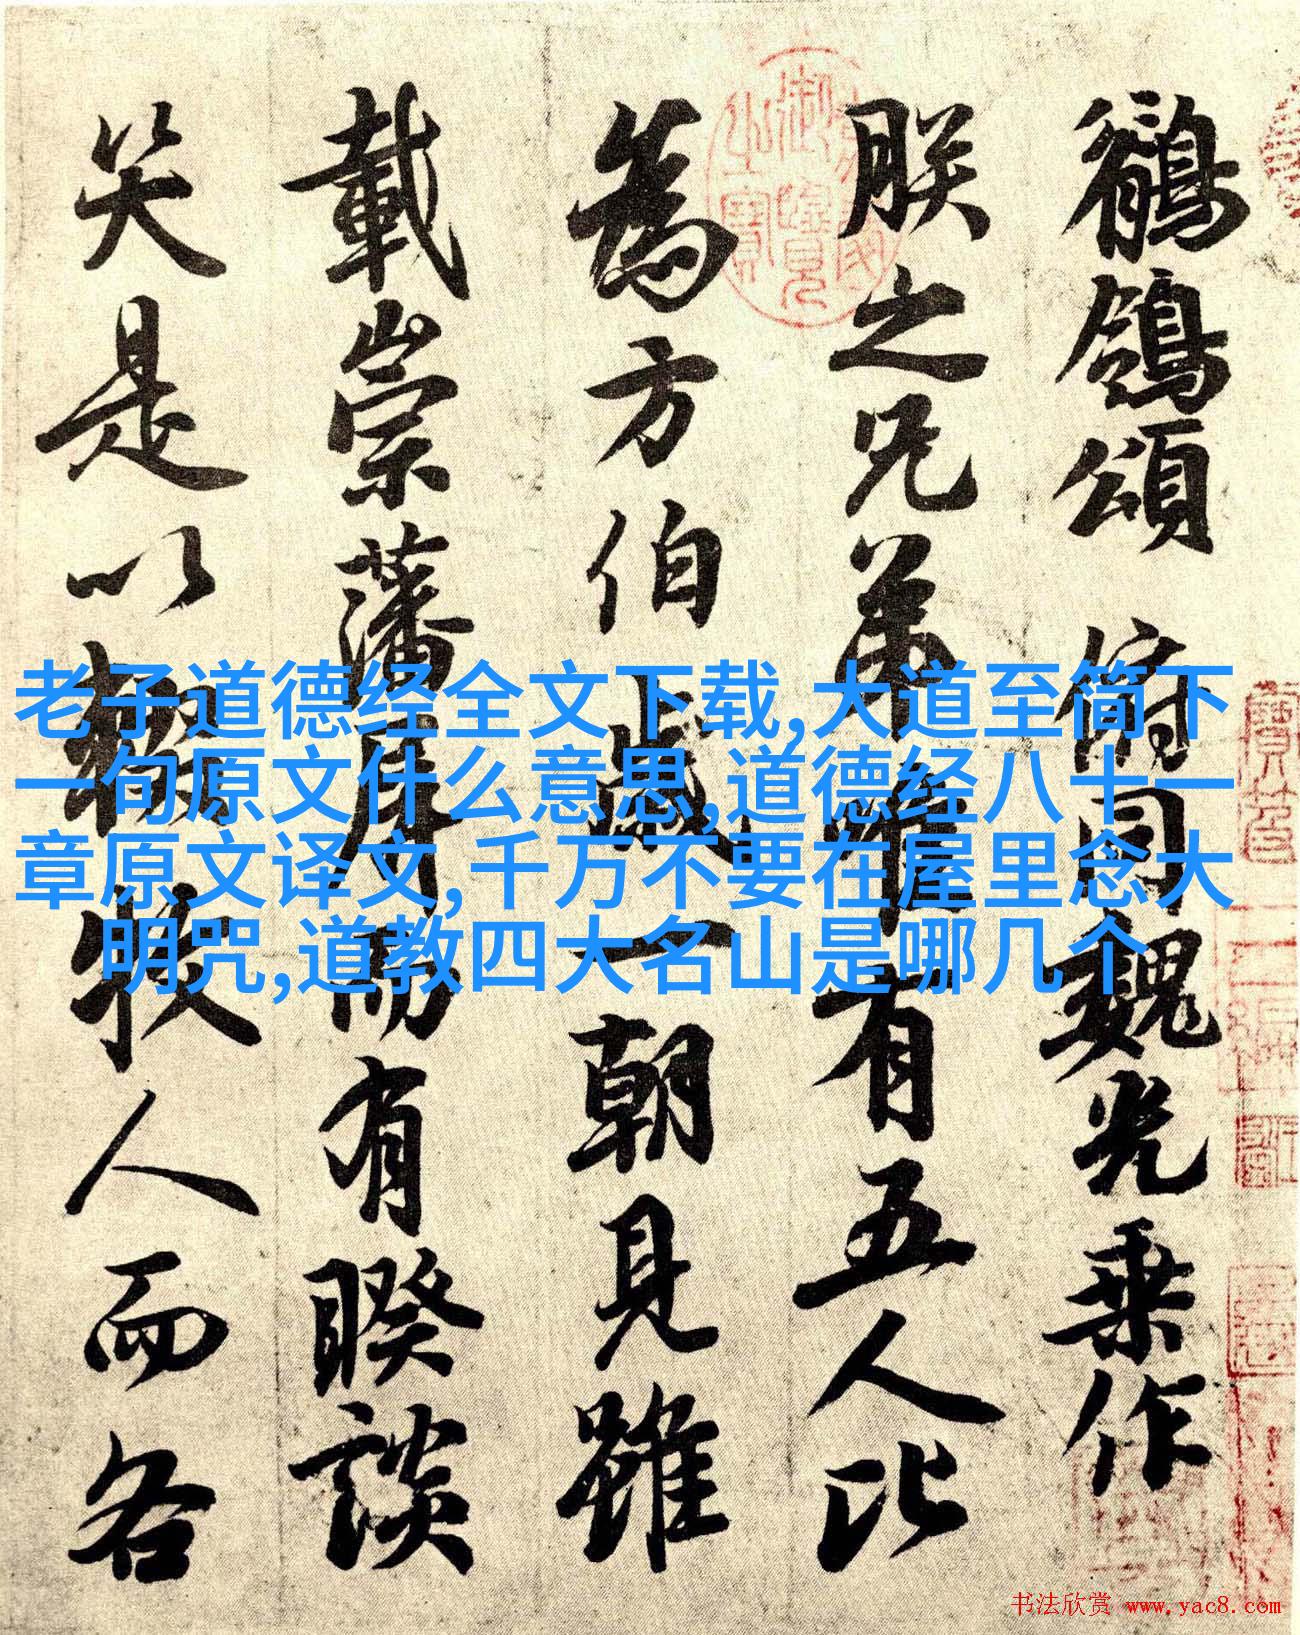 鶺鴒頌 俯同魏光乘作
朕之兄弟唯有五人比
為方伯歲一朝見雖
載崇藩屏而有睽談
笑是以輟牧人而各
老子道德经全文下载,大道至简下
一句原文什么意思,道德经八十一
章原文译文,千万不要在屋里念大
明咒,道教四大名山是哪几个
书法欣赏 www.yac8.com